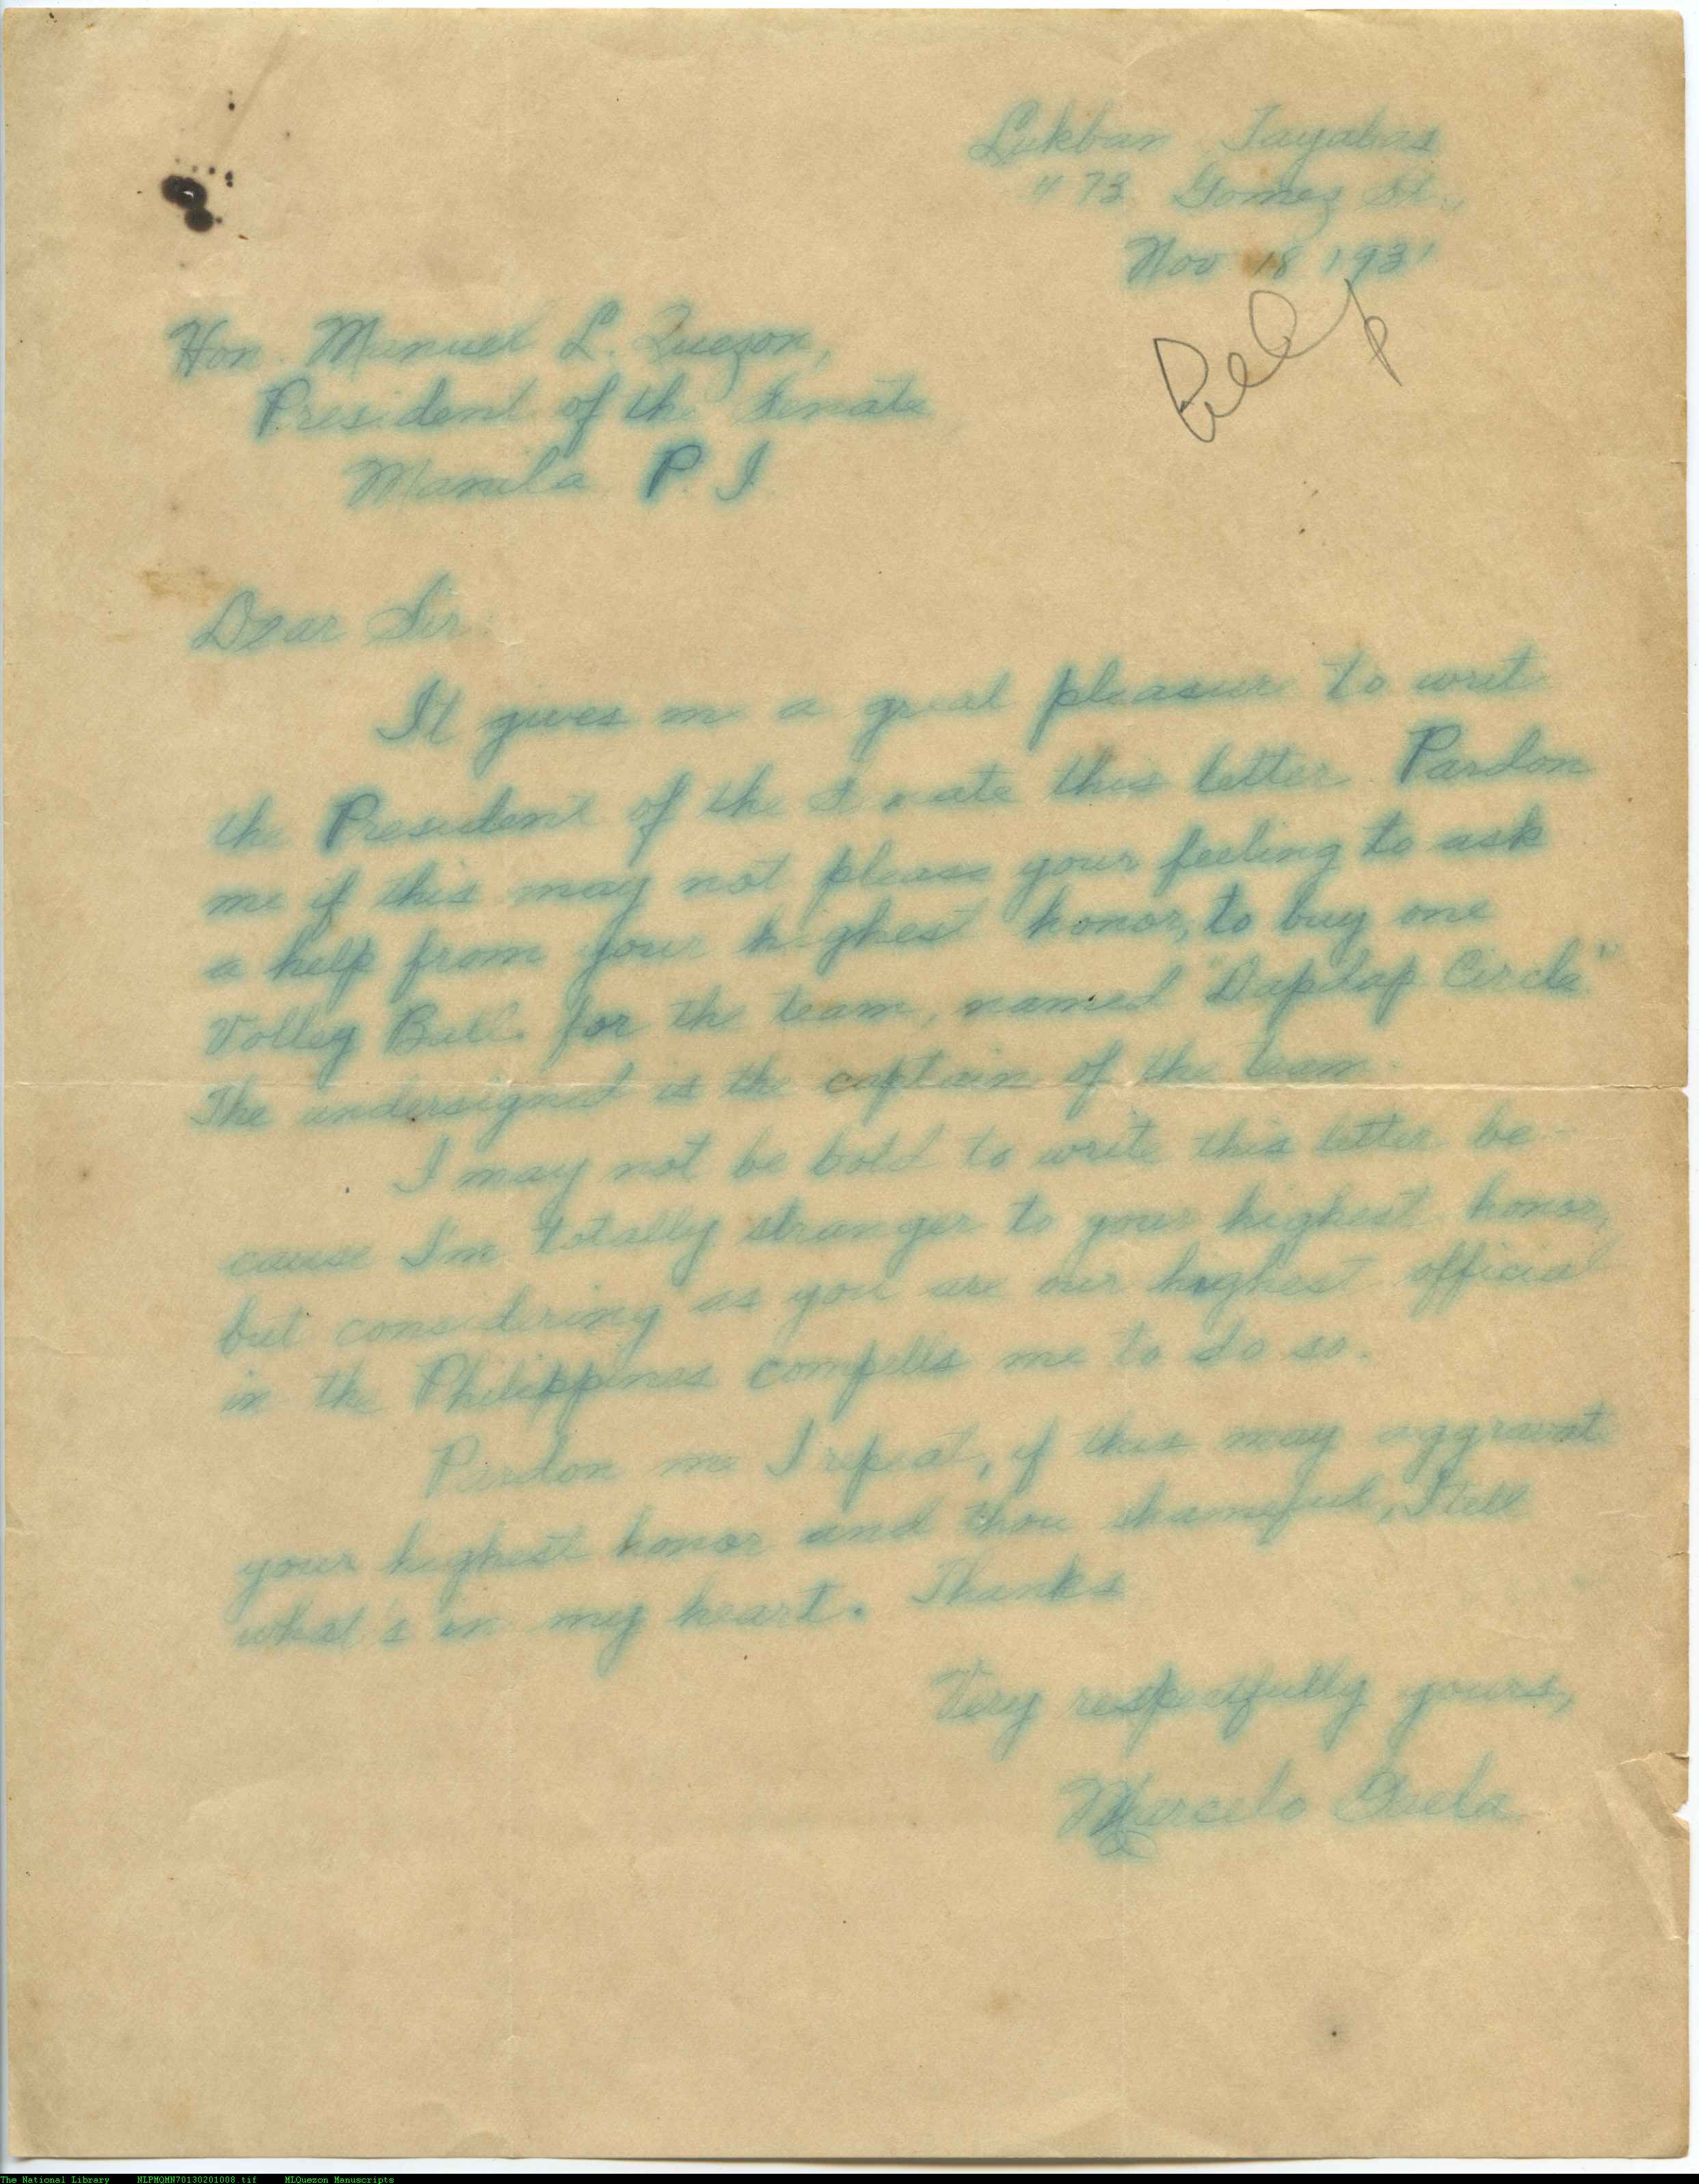 Lukban Tayabas
# 73 Gomez St.,
Nov. 18 1931
Hon. Manuel L. Quezon,
President of the Senate
Manila P. I.
Dear Sir:
It gives me a great pleasure to write
the President of the Senate this letter. Pardon
me if this may not please your feeling to ask
a help from your highest honor, to buy one
Volley Ball for the team, named "Daplap Circle"
The undersigned is the captain of the team.
I may not be bold to write this letter be-
cause I'm totally stranger to your highest honor,
but considering as you are our highest official
in the Philippines compells me to do so.
Pardon me I repeat, if this may aggravate
your highest honor and thou shameful, I tell
what's in my heart. Thanks
Very respectfully yours,
Marcelo
The National Library NLPMQMN70130201008.tif MLQuezon Manuscripts